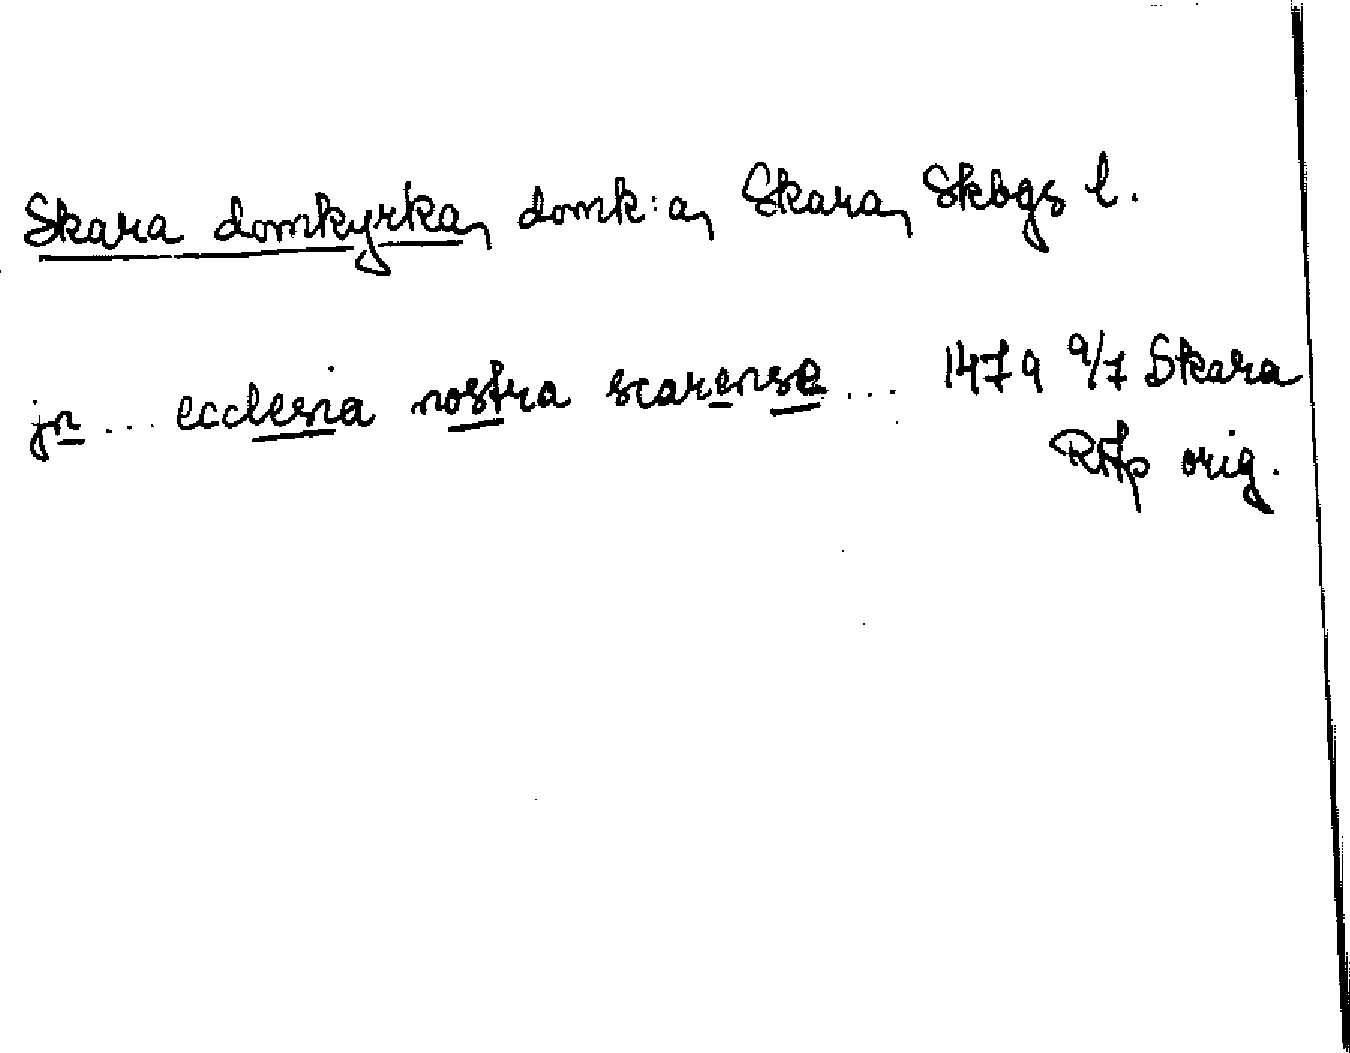 Skara domkyrka, domk:a, Skara, Skbgs l.
jn ... ecclesia nostra scarense ... 1479 9/7 Skara
RAp orig.